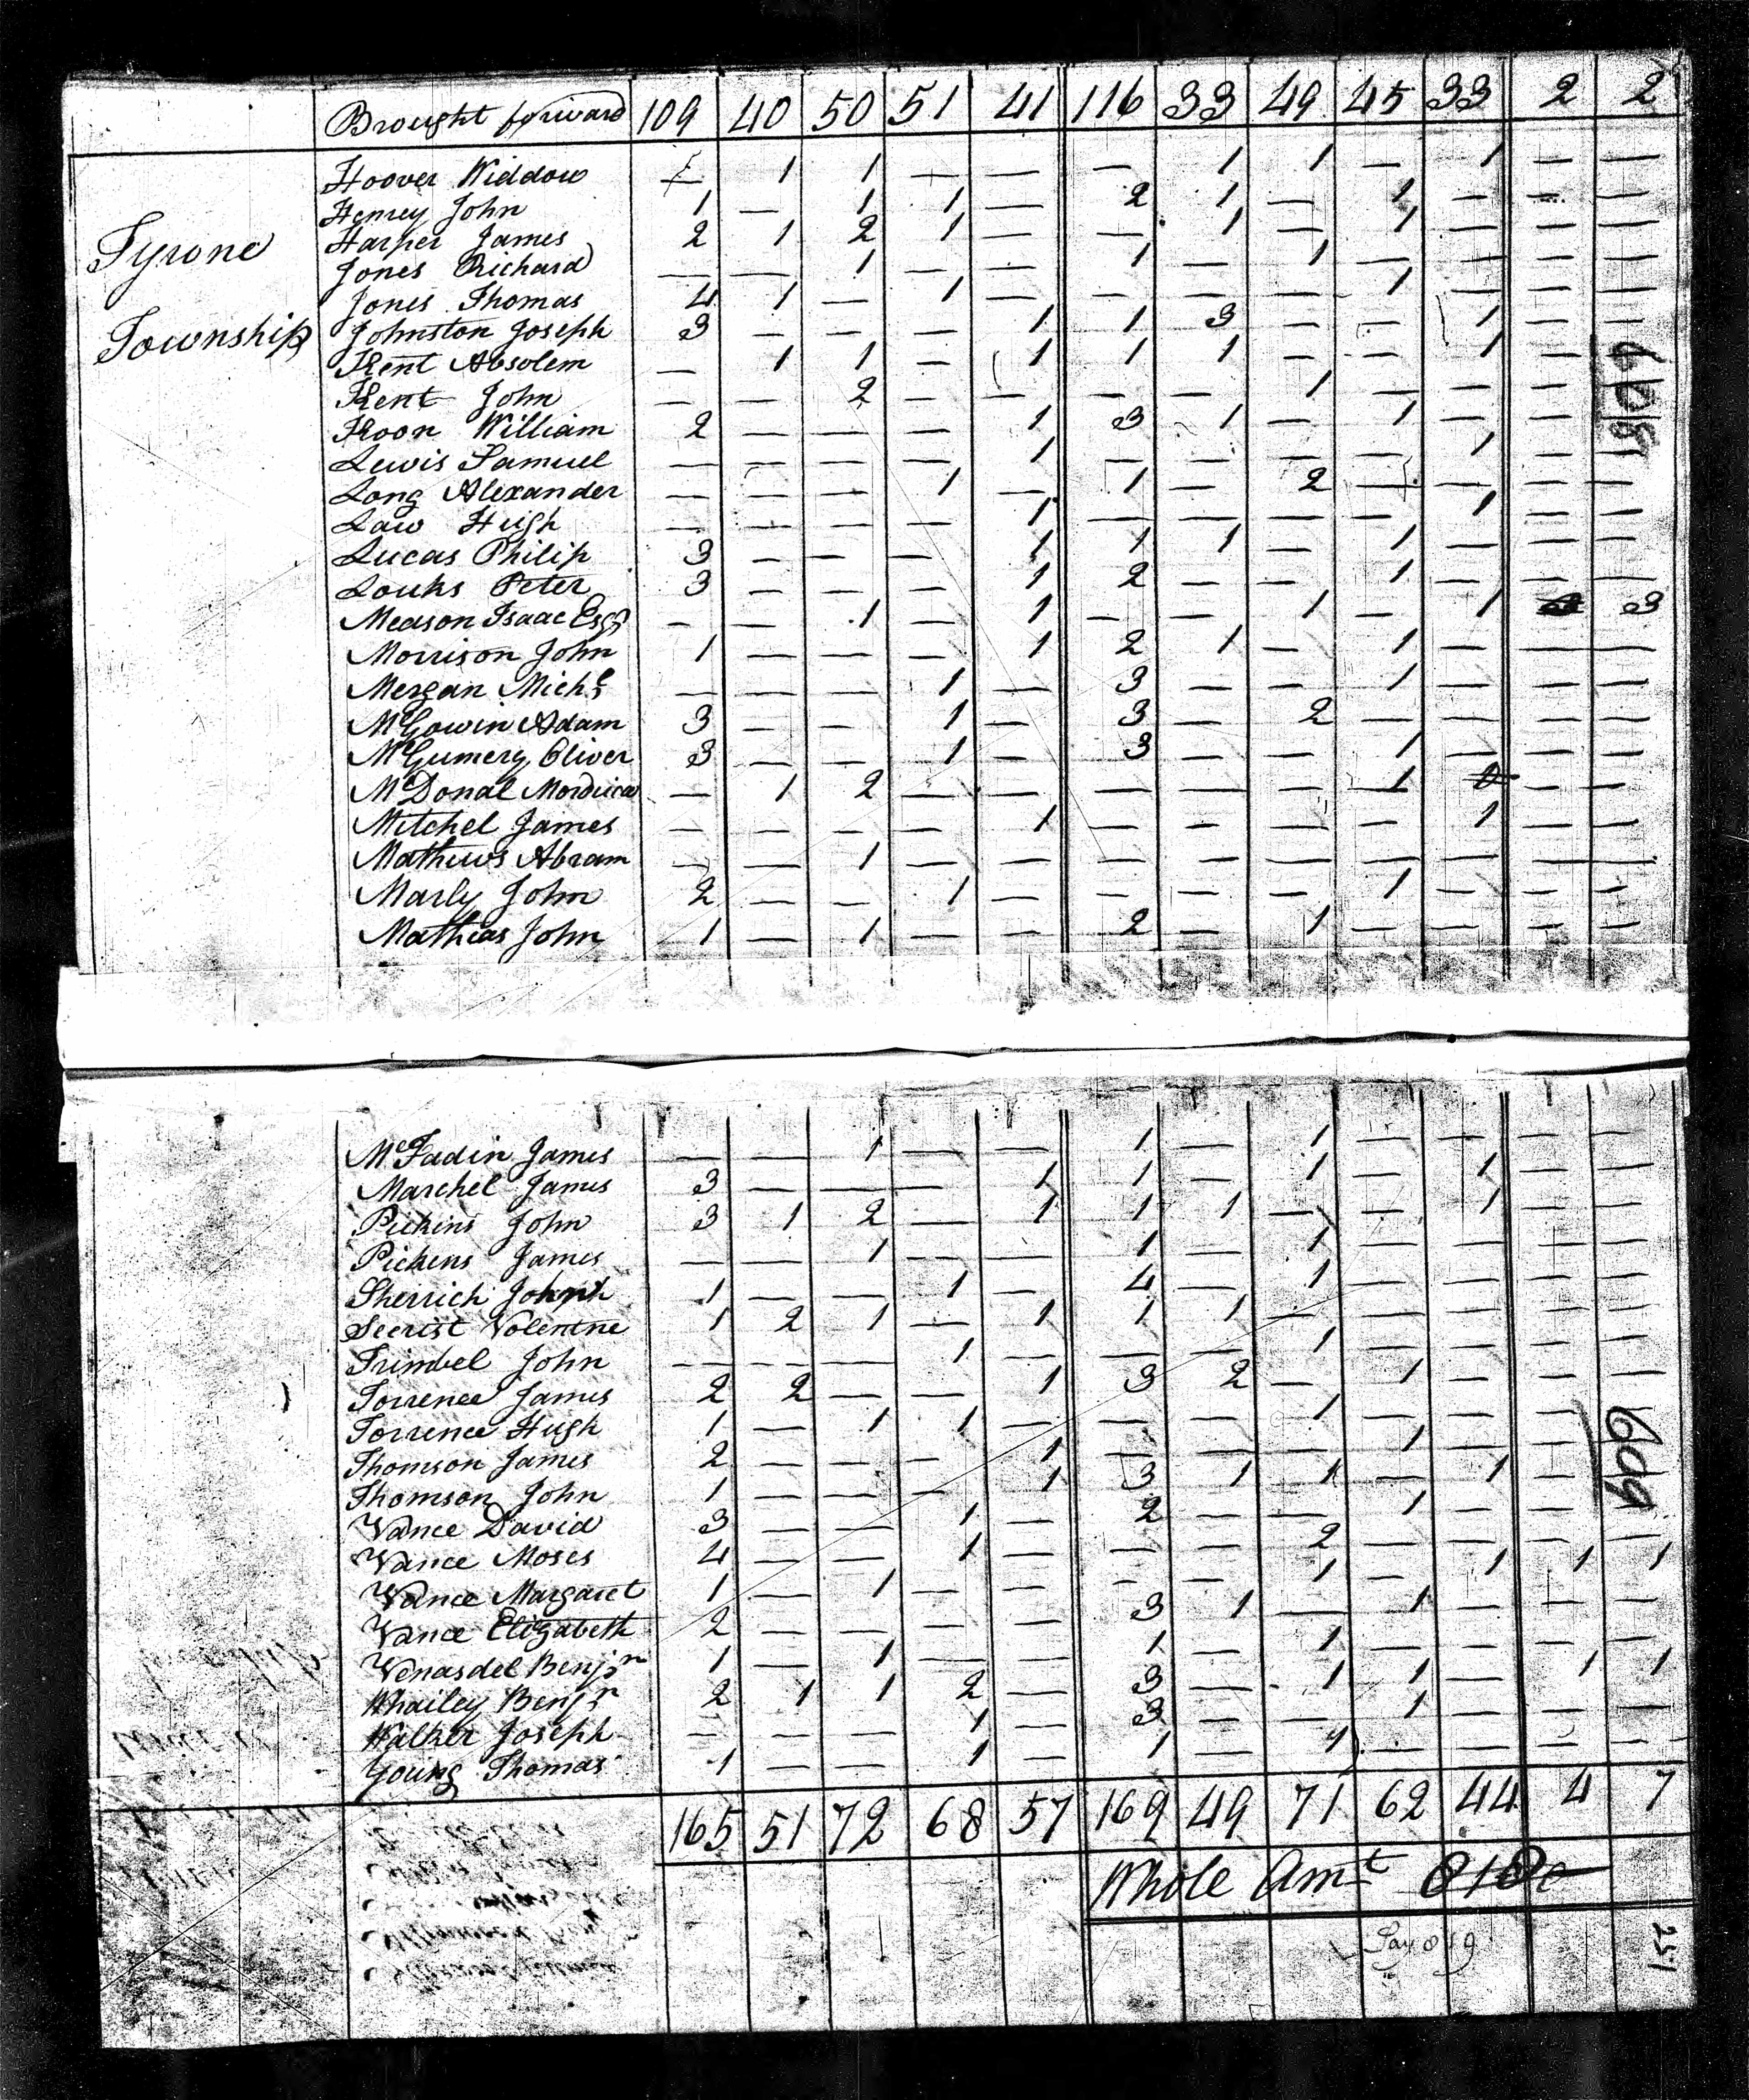 Brought forward 109 40 50 51 41 116 33 49 45 33 2 2
Tyrone
Township
Hoover Widdow — 1 1 — — — 1 1 — 1 — —
Henrey John 1 — 1 1 — 2 1 — 1 — — —
Harper James 2 1 2 1 — — 1 — 1 — — —
Jones Richard — — 1 — — 1 — 1 — — — —
Jones Thomas 4 1 — 1 — — — — 1 — — —
Johnston Joseph 3 — — — 1 1 3 — — 1 — —
Kent Absolem — 1 1 — 1 1 1 — — 1 —
Kent John — — 2 — — — — 1 — — —
Koon William 2 — — — 1 3 1 — 1 — —
Lewis Samuel — — — — 1 — — — — 1 — —
Long Alexander — — — 1 — 1 — 2 — — — —
Law Hugh — — — — 1 — — — — 1 — —
Lucas Philip 3 — — — 1 1 1 — 1 — — —
Louks Peter 3 — — — 1 2 — — 1 — — —
Meason Isaac Esqr — — 1 — 1 — — 1 — 1 3
Morrison John 1 — — — 1 2 1 — 1 — — —
Mergan Michl — — — 1 — 3 — — 1 — — —
McGowin Adam 3 — — 1 — 3 — 2 — — — —
McGumery Oliver 3 — — 1 — 3 — — 1 — — —
McDonal Mordica — 1 2 — — — — — 1 — —
Mitchel James — — — — 1 — — — — 1 — —
Mathews Abram — — 1 — — — — — — — — —
Marly John 2 — — 1 — — — — 1 — — —
Mathias John 1 — 1 — — 2 — 1 — — — —
McFadin James — — 1 — — 1 — 1 — — — —
Marchel James 3 — — — 1 1 — 1 — 1 — —
Pickins John 3 1 2 — 1 1 1 — — 1 — —
Pickens James — — 1 — — 1 — 1 — — — —
Sherrich 1 — — 1 — 4 — 1 — — — —
Secrist Volentne 1 2 1 — 1 1 1 — — — — —
Trimbel John — — — 1 — — — 1 — — — —
Torrence James 2 2 — — 1 3 2 — 1 — — —
Torrence Hugh 1 — 1 1 — — — 1 — — — —
Thomson James 2 — — — 1 — — — 1 — — —
Thomson John 1 — — — 1 3 1 1 — 1 —
Vance David 3 — — 1 — 2 — — 1 — —
Vance Moses 4 — — 1 — — — 2 — — — —
Vance Margaret 1 — 1 — — — — 1 — 1 1 1
Vance Elizabeth 2 — — — — 3 1 — 1 — — —
Venasdel Benjn 1 — 1 — — 1 — 1 — — — —
Whailey Benjn 2 1 1 2 — 3 — 1 1 — 1 1
Walker Joseph — — — 1 — 3 — — 1 — — —
Young Thomas 1 — — 1 — 1 — — — — —
165 51 72 68 57 169 49 71 62 44 4 7
Whole Amt
Say 819
608
609
251